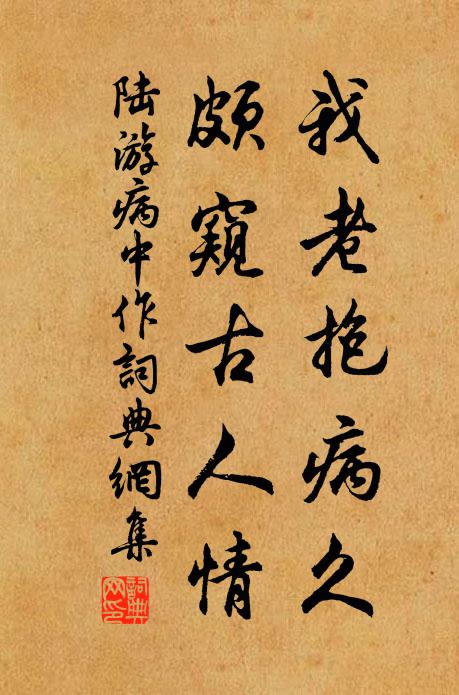 我老抱病久
頗窺古人情
陸游病中作詞典網集
詞典網印